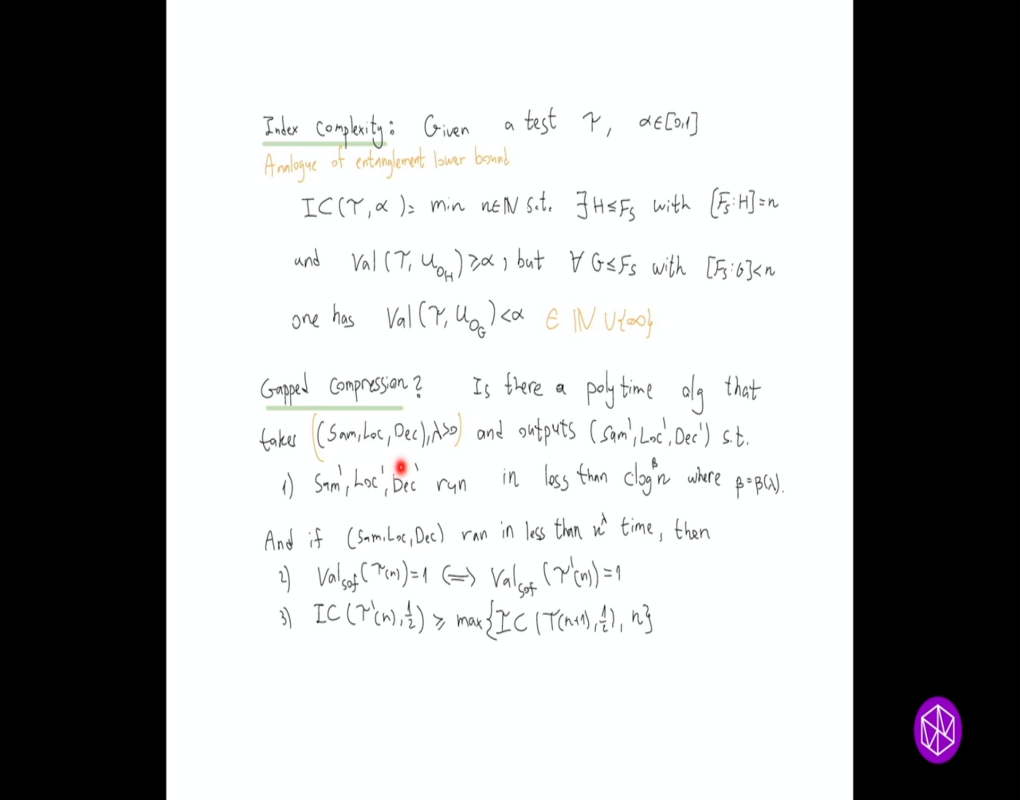 Index Complexity: Given a test 𝒯, α∈[0,1]
Analogue of entanglement lower bound
IC(𝒯,α)= min n∈ℕ s.t. ∃H≤F_S with [F_S:H]=n
and Val(𝒯,U_{O_H})≥α, but ∀G≤F_S with [F_S:G]<n
one has Val(𝒯,U_{O_G})<α ∈ ℕ∪{∞}
Gapped Compression? Is there a polytime alg that
takes ((Sam,Loc,Dec),λ>0) and outputs (Sam',Loc',Dec') s.t.
1) Sam',Loc',Dec' run in less than clog^β n where β=β(λ).
And if (Sam,Loc,Dec) ran in less than n^λ time, then
2) Val_{sof}(𝒯(n))=1 ⟺ Val_{sof}(𝒯'(n))=1
3) IC(𝒯'(n),½) ≥ max{IC(𝒯(n+1),½), n}